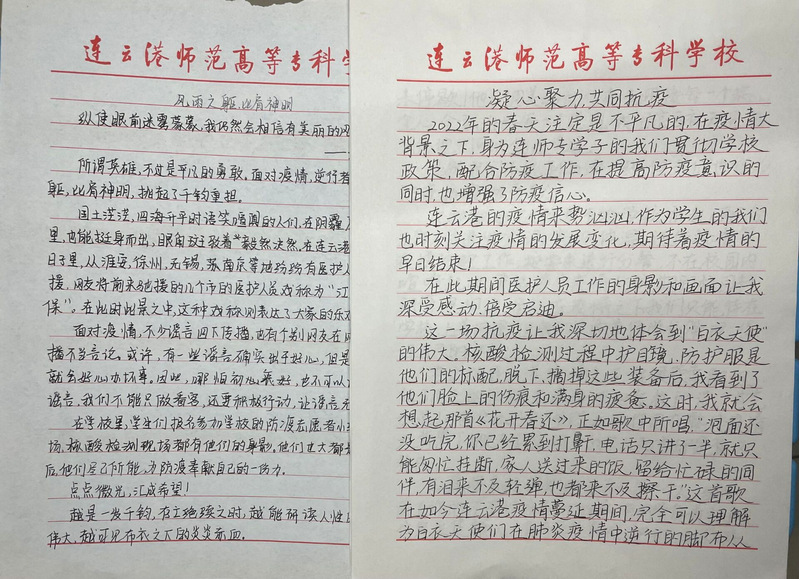 连云港师范高等专科学
风雨之躯,比肩神明
纵使眼前迷雾蒙蒙,我仍然会相信有美丽的风
所谓英雄,不过是平凡的勇敢。面对疫情,逆行者
躯,比肩神明,挑起了千钧重担。
国土茫茫,四海升平时谈笑
里,也能挺身而出,眼角 毅然决然,在连云港
日子里,从淮安、徐州、无锡、苏南京等地纷纷有医护人
援,网友将前来驰援的几个市的医护人员戏称为“江
保”。在此时此景之中,这种戏称则表达了大家的乐
面对疫情,不少谣言四下传播,也有个别网友在网
播不当言论。或许,有一些谣言确实出于好心,但是
就会好心办坏事。因此,哪怕初心最好,也不可以
谣言,我们不能只做看客,还要积极行动,让谣言无
在学校里,学生们报名参加学校的防疫志愿者小
场,核酸检测现场都有他们的身影。他们也大都
后,他们尽了所能,为防疫奉献自己的一份力。
点点微光,汇成希望!
越是一发千钧,存亡绝续之时,越能研读人性
伟大,越可见布衣之下的炎炎赤血。
连云港师范高等专科学校
凝心聚力,共同抗疫
2022年的春天注定是不平凡的,在疫情大
背景之下,身为连师专学子的我们贯彻学校
政策,配合防疫工作,在提高防疫意识的
同时,也增强了防疫信心。
连云港的疫情来势汹汹,作为学生的我们
也时刻关注疫情的发展变化,期待着疫情的
早日结束!
在此期间医护人员工作的身影和画面让我
深受感动、倍受启迪。
这一场抗疫让我深切地体会到“白衣天使”
的伟大,核酸检测过程中护目镜、防护服是
他们的标配,脱下、摘掉这些装备后,我看到了
他们脸上的伤痕和满身的疲惫。这时,我就会
想起那首《花开春还》,正如歌中所唱,“泡面还
没吃完,你已经累到打鼾,电话只讲了一半,就只
能匆忙挂断,家人送过来的饭,留给忙碌的同
伴,有泪来不及轻弹,也都来不及擦干。”这首歌
在如今连云港疫情蔓延期间,完全可以理解
为白衣天使们在肺炎疫情中逆行的脚步从